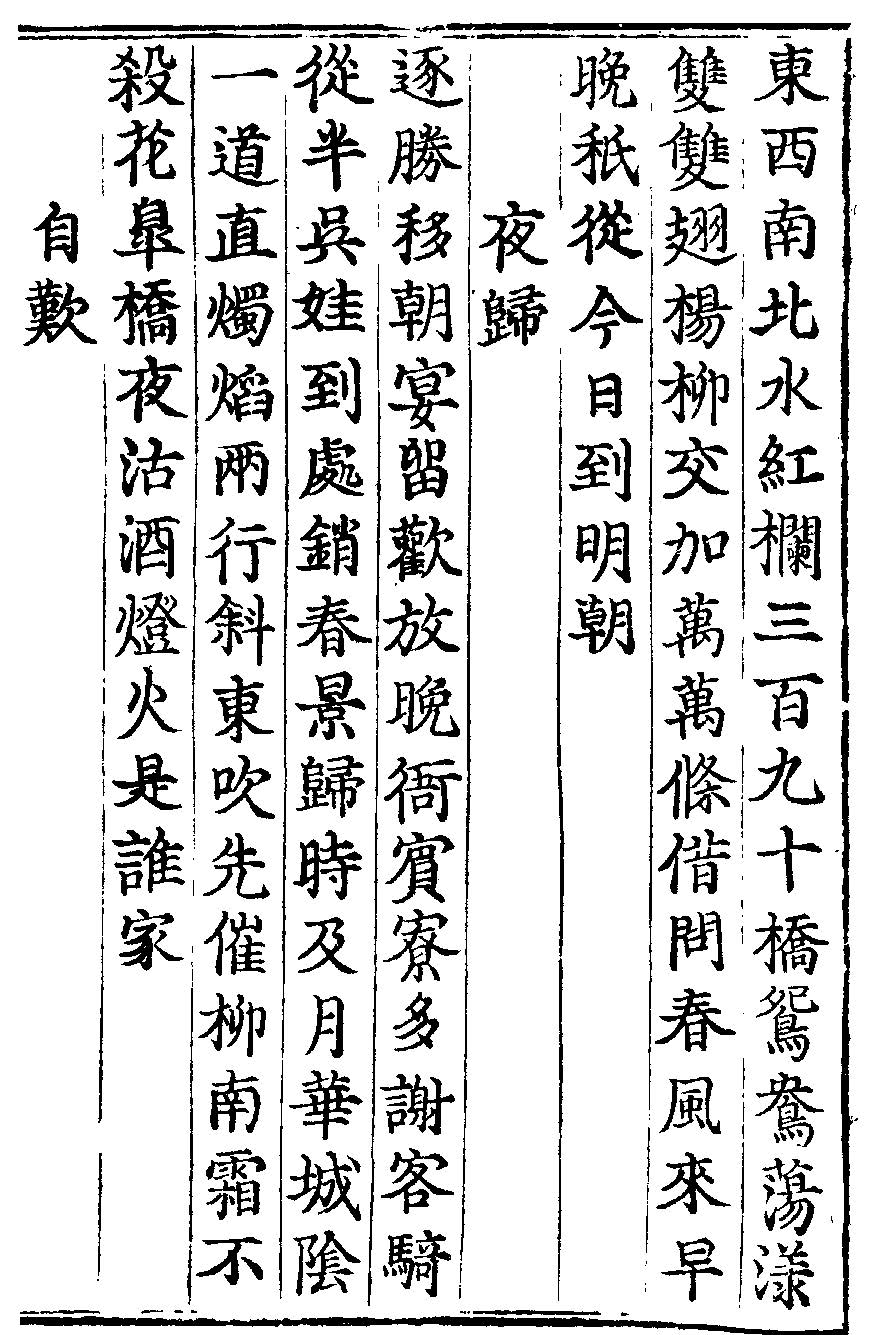 東西南北水紅欄三百九十橋鴛鴦蕩漾
雙雙翅楊柳交加萬萬條借問春風來早
晚秖從今日到明朝
夜歸
逐勝移朝宴留歡放晚衙賓寮多謝客騎
從半吳娃到處銷春景歸時及月華城陰
一道直燭熖兩行斜東吹先催柳南霜不
殺花臯橋夜沽酒燈火是誰家
自歎